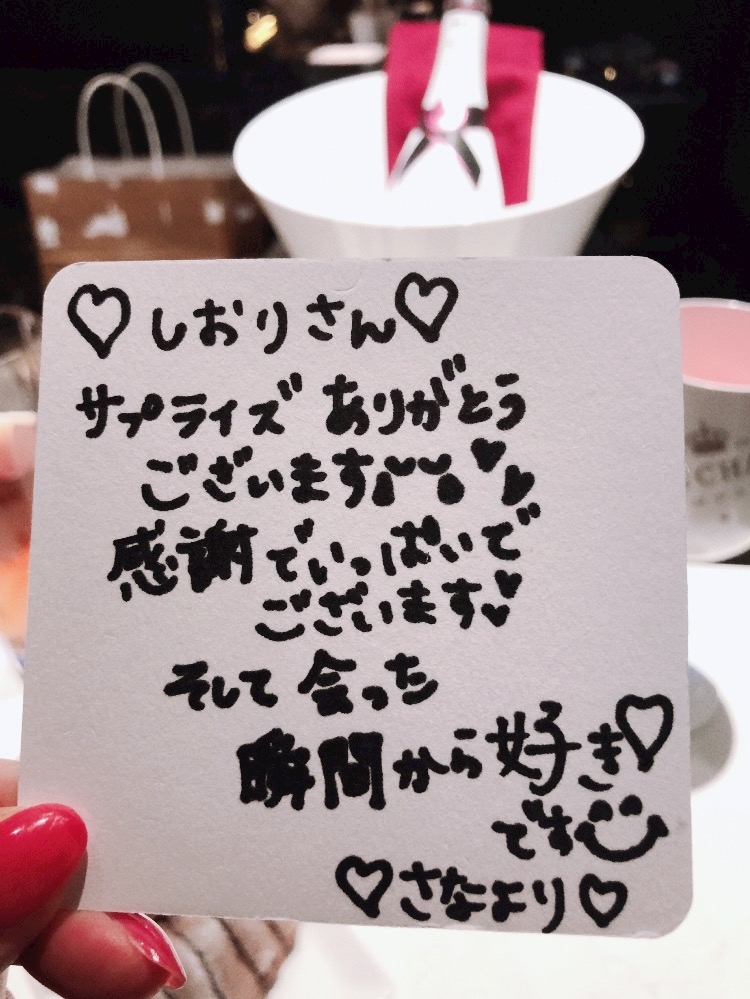 ♡しおりさん♡
サプライズ ありがとう
ございます
感謝でいっぱいで
ございます
そして 会った
瞬間から好き♡
です
♡さなより♡